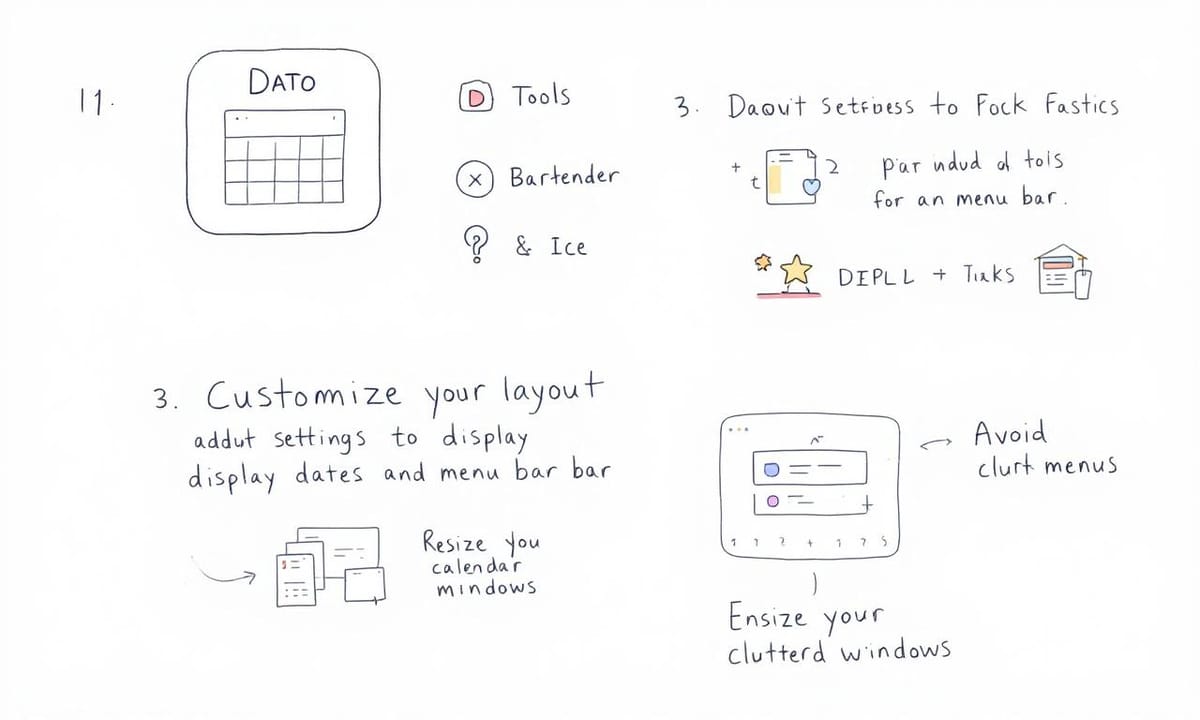 11.
DATO
Tools
Bartender
& Ice
3. Daouit Setfbess to Fock Fastics
+ t 2
par udud of tols
for an menu bar.
DEPLL + Tıaks
3. Customize your layout
addut settings to display
display dates and menu bar bar
Resize you
calendar
mindows
Avoid
clurt menus
Ensize your
clutterd windows